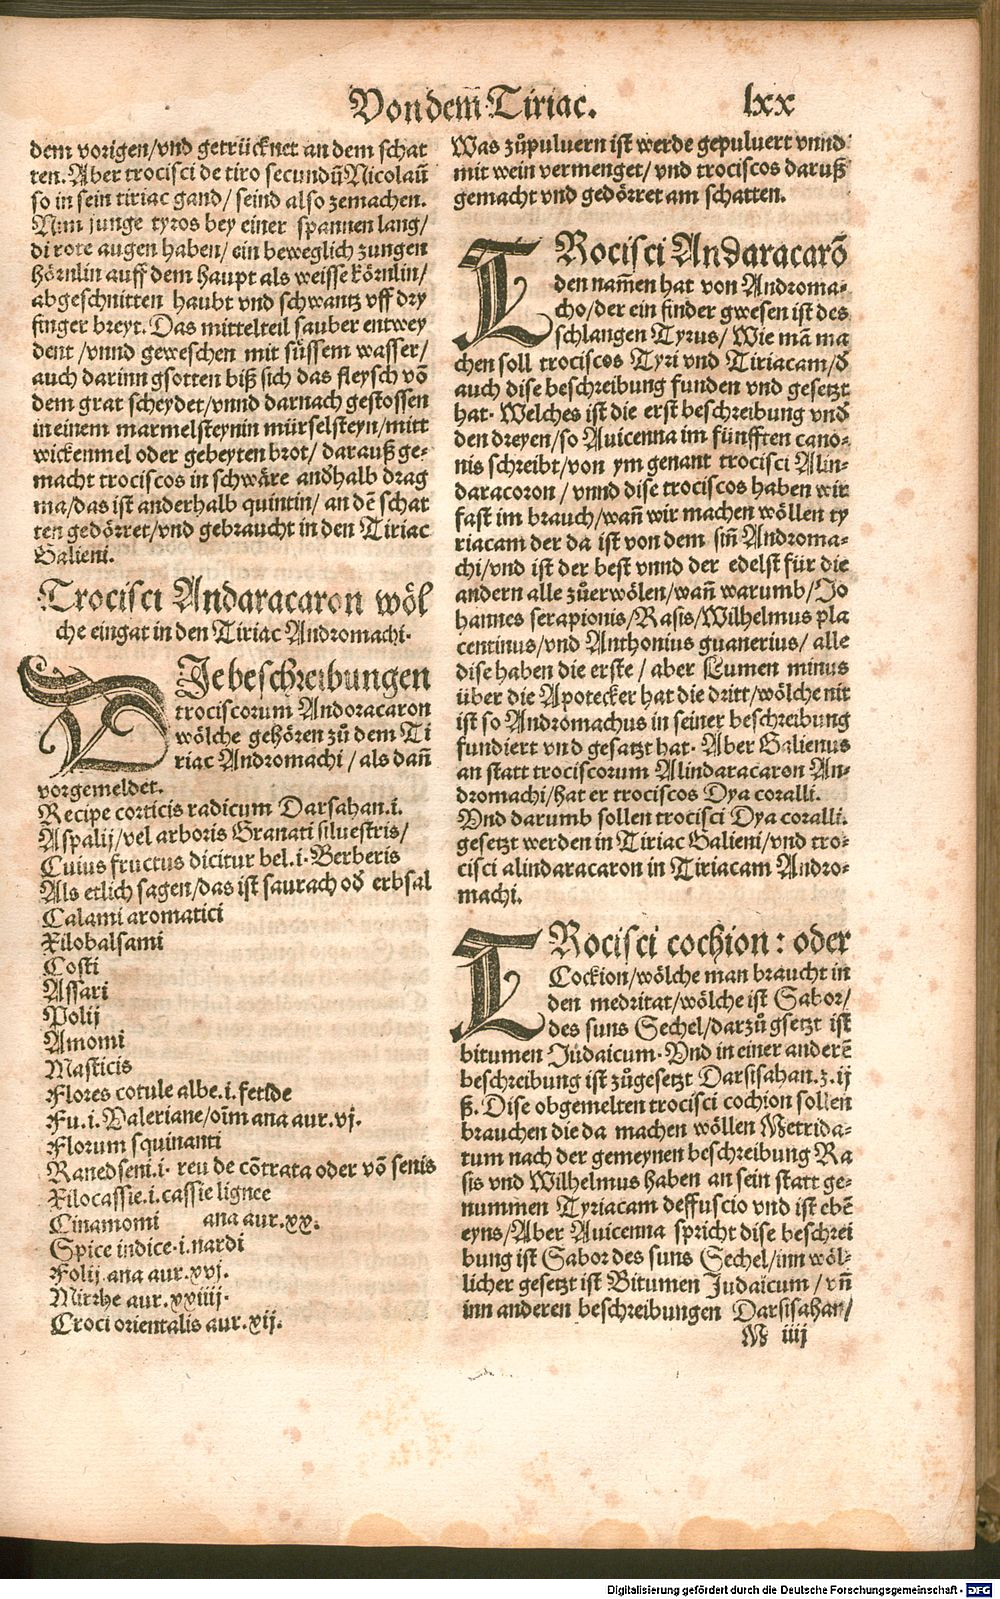 Von dem̃ Tiriac. lxx
dem vorigen/vnd getrücknet an dem schat
ten. Aber trocisci de tiro secundũ Nicolaũ
so in sein tiriac gand/ seind also zemachen.
Nim junge tyros bey einer spannen lang/
di rote augen haben/ ein beweglich zungen
hörnlin auff dem haupt als weisse körnlin/
abgeschnitten haubt vnd schwantz vff dry
finger breyt. Das mittelteil sauber entwey
dent /vnnd geweschen mit süssem wasser/
auch darinn gsotten biß sich das fleysch võ
dem grat scheydet/vnnd darnach gestossen
in einem marmelsteynin mürselsteyn/mitt
wickenmel oder gebeyten brot/ darauß ge-
macht trociscos in schwäre andhalb drag
ma/das ist anderhalb quintin/ an dẽ schat
ten gedörret/vnd gebraucht in den Tiriac
Galieni.
Trocisci Andaracaron wöl
che eingat in den Tiriac Andromachi.
DIe beschreibungen
trociscorum Andoracaron
wölche gehören zů dem Ti
riac Andromachi / als dañ
vorgemeldet.
Recipe corticis radicum Darsahan.i.
Aspalij/vel arboris Granati siluestris/
Cuius fructus dicitur bel.i. Berberis
Als etlich sagen/das ist saurach oď erbsal
Calami aromatici
Xilobalsami
Costi
Assari
Polij
Amomi
Masticis
Flores cotule albe.i. fetide
Fu.i. Valeriane/oĩm ana aur.vj.
Florum squinanti
Ranedseni.i. reu de cõtrata oder võ senis
Xilocassie.i. cassie lignee
Cinamomi ana aur.xx.
Spice indice.i.nardi
Folij ana aur.xvj.
Mirrhe aur.xxiiij.
Croci orientalis aur.xij.
Was zůpuluern ist werde gepuluert vnnd
mit wein vermenget/ vnd trociscos daruß
gemacht vnd gedörret am schatten.
TRocisci Andaracarõ
den nam̃en hat von Androma-
cho/der ein finder gwesen ist des
schlangen Tyrus/ Wie mã ma
chen soll trociscos Tyri vnd Tiriacam/ď
auch dise beschreibung funden vnd gesetzt
hat. Welches ist die erst beschreibung vnď
den dreyen/so Auicenna im fünfften cano-
nis schreibt/von ym genant trocisci Alin-
daracoron / vnnd dise trociscos haben wir
fast im brauch/wañ wir machen wöllen ty
riacam der da ist von dem sin̄ Androma-
chi/vnd ist der best vnnd der edelst für die
andern alle zůerwölen/wañ warumb/Jo
hannes serapionis/Rasis/Wilhelmus pla
centinus/vnd Anthonius guanerius/ alle
dise haben die erste / aber Lumen minus
über die Apotecker hat die dritt/wölche nit
ist so Andromachus in seiner beschreibung
fundiert vnd gesatzt hat. Aber Galienus
an statt trociscorum Alindaracaron An-
dromachi/hat er trociscos Dya coralli.
Vnd darumb sollen trocisci Dya coralli.
gesetzt werden in Tiriac Galieni/vnd tro-
cisci alindaracaron in Tiriacam Andro-
machi.
TRocisci cochion: oder
Cockion/wölche man braucht in
den medritat/wölche ist Sabor/
des suns Sechel/darzů gsetzt ist
bitumen Júdaicum. Vnd in einer anderẽ
beschreibung ist zůgesetzt Darsisahan.ʒ.ij
ß. Dise obgemelten trocisci cochion sollen
brauchen die da machen wöllen Metrida-
tum nach der gemeynen beschreibung Ra
sis vnd Wilhelmus haben an sein statt ge-
nummen Tyriacam deffuscio vnd ist ebẽ
eyns/Aber Auicenna spricht dise beschrei
bung ist Sabor des suns Sechel/inn wöl-
licher gesetzt ist Bitumen Judaicum / vñ
inn anderen beschreibungen Darsisahan/
M iiij
Digitalisierung gefördert durch die Deutsche Forschungsgemeinschaft - DFG